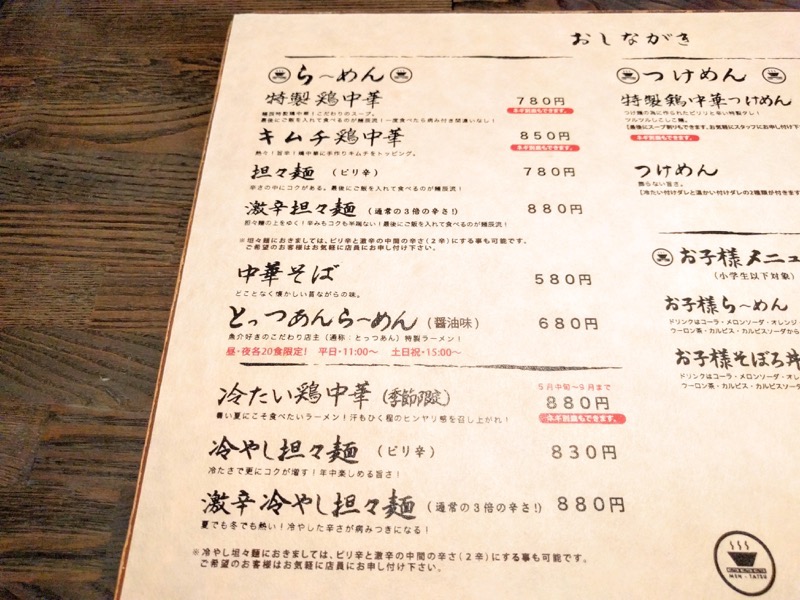 おしながき
ら〜めん
特製鶏中華 780円
ネギ別盛もできます。
麺辰特製鶏中華！こだわりのスープ。
最後にご飯を入れて食べるのが麺辰流！一度食べたら病み付き間違いなし！
キムチ鶏中華 850円
ネギ別盛もできます。
熱々！旨辛！鶏中華に手作りキムチをトッピング。
担々麺 （ピリ辛） 780円
辛さの中にコクがある。最後にご飯を入れて食べるのが麺辰流！
激辛担々麺 （通常の3倍の辛さ!） 880円
担々麺の上をゆく！辛みもコクも半端ない！最後にご飯を入れて食べるのが麺辰流！
※坦々麺におきましては、ピリ辛と激辛の中間の辛さ（2辛）にする事も可能です。
ご希望のお客様はお気軽に店員にお申し付け下さい。
中華そば 580円
どことなく懐かしい昔ながらの味。
とっつあんら〜めん （醤油味） 680円
魚介好きのこだわり店主（通称：とっつあん）特製ラーメン！
昼・夜各20食限定! 平日・11:00〜 土日祝・15:00〜
5月中旬〜9月まで
冷たい鶏中華（季節限定） 880円
ネギ別盛もできます。
暑い夏にこそ食べたいラーメン！汗もひく程のヒンヤリ感を召し上がれ！
冷やし担々麺 （ピリ辛） 830円
冷たさで更にコクが増す！年中楽しめる旨さ！
激辛冷やし担々麺 （通常の3倍の辛さ!） 880円
夏でも冬でも熱い！冷やした辛さが病みつきになる！
※冷やし坦々麺におきましては、ピリ辛と激辛の中間の辛さ（2辛）にする事も可能です。
ご希望のお客様はお気軽に店員にお申し付け下さい。
つけめん
特製鶏中華つけめん
つけ麺の為に作られたピリッと辛い特製ダレ！
ツルツルしこしこ麺。
【最後にスープ割りもできます。お気軽にスタッフにお申し付け下
ネギ別盛もできます。
つけめん
飾らない旨さ。
【冷たい付けダレと温かい付けダレの2種類が付きます
お子様メニュ
（小学生以下対象）
お子様ら〜めん
ドリンクはコーラ・メロンソーダ・オレンジ・
ウーロン茶・カルピス・カルピスソーダから
お子様そぼろ丼
ドリンクはコーラ・メロンソーダ・オレ
ウーロン茶・カルピス・カルピスソーダ
MEN-TATSU